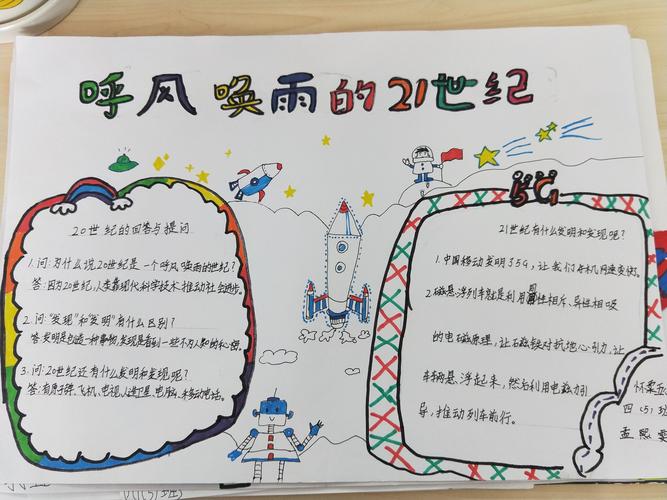 呼风唤雨的21世纪
5G
20世纪的回答与提问
1.问:为什么说20世纪是一个呼风唤雨的世纪?
答:因为20世纪,人类靠现代科学技术推动社会进步。
2.问:"发现"和"发明"有什么区别?
答:发明是创造一种事物,发现是看到一些不为人知的
3.问:20世纪还有什么发明和发现呢?
答:有原子弹、飞机、电视、人造卫星、电脑、移动电话。
21世纪有什么发明和发现呢?
1.中国移动发明了5G,让我们手机网速变快。
2.磁悬浮列车就是利用同性相斥、异性相吸
的电磁原理,让磁铁对抗地心引力,让
车辆悬浮起来,然后利用电磁力引
导,推动列车前行。
怀柔五
四(5)班
孟思